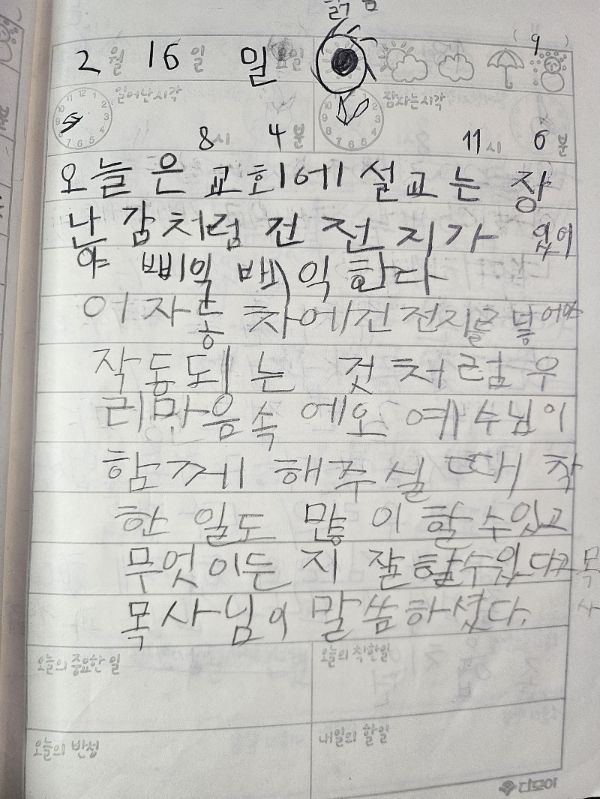 맑음
2월 16일 일요일
(9)
일어난시각 8시 4분
잠자는시각 11시 6분
오늘은 교회에 설교는 장
난감처럼 건전지가 있어
야 삐익 빼익한다
이 자동차에 건전지를 넣어야
작동되는 것처럼 우
리마음속에도 예수님이
함께 해주실 때 착
한 일도 많이 할수있고
무엇이든지 잘할수있다고 목
사
목사님이 말씀하셨다.
오늘의 중요한 일
오늘의 착한일
오늘의 반성
내일의 할일